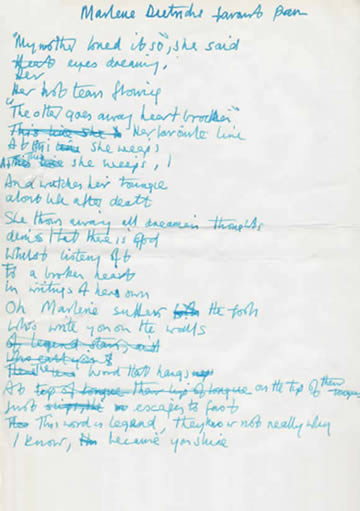 Marlene Dietrichs favourite Poem
"My mother loved it so", she said
eyes dreaming,
Her
Her hot tears flowing
"The other goes away heart broken"
This line she is Her favourite line
At this line she weeps
At this line she weeps,
And watches her tongue
about life after death
She throws away all dreamin thoughts
denies that there is God
Whilst listening
To a broken heart
in writings of her own
Oh Marlene suffers the fools
who write you on the walls
of legend stars, and
who
word that hangs
At top of tongue their tip of tongue on the tip of their tongue
Just escapes to fast
This word is legend, they know not really why
I know, because you shine